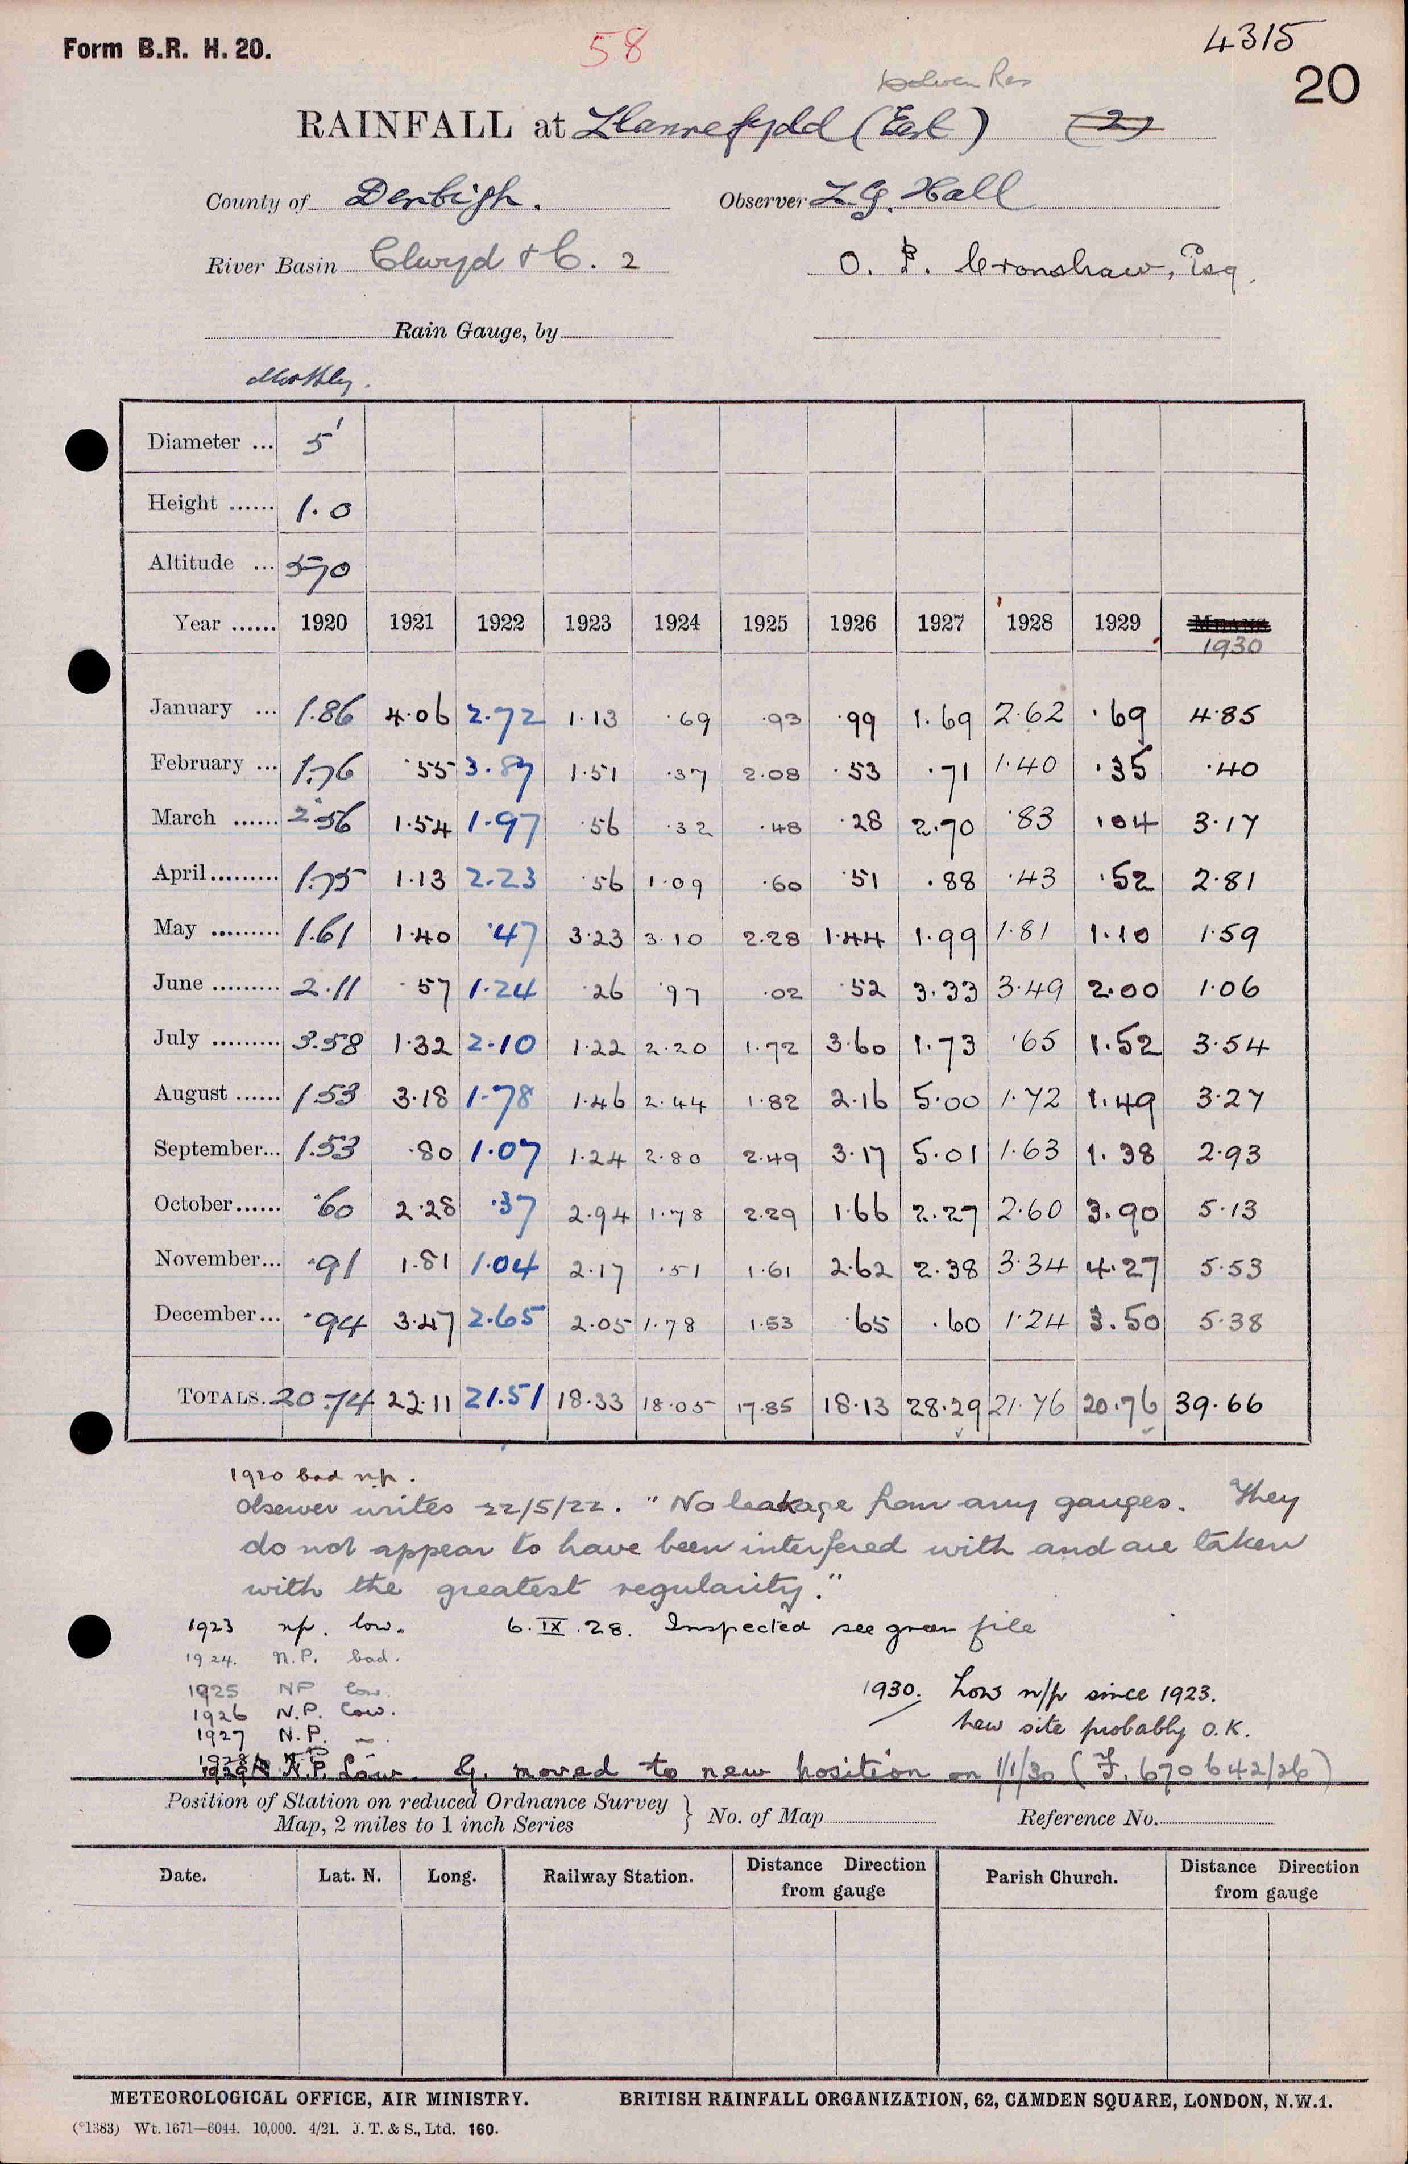 Form B.R. H. 20.
58
4315
20
RAINFALL at Llannefydd (East) (2)
County of Denbigh. Observer L. G. Hall
River Basin Clwyd & C. 2 O. P. Cronshaw, Esq.
Rain Gauge, by
Monthly.
Diameter ... 5
Height ...... 1.0
Altitude ... 570
Year ...... 1920 1921 1922 1923 1924 1925 1926 1927 1928 1929 1930
January ... 1.86 4.06 2.72 1.13 .69 .93 .99 1.69 2.62 .69 4.85
February ... 1.76 .55 3.87 1.51 .37 2.08 .53 .71 1.40 .35 .40
March ...... 2.56 1.54 1.97 .56 .32 .48 .28 2.70 .83 .04 3.17
April ......... 1.75 1.13 2.23 .56 1.09 .60 .51 .88 .43 .52 2.81
May ......... 1.61 1.40 .47 3.23 3.10 2.28 1.44 1.99 1.81 1.10 1.59
June ......... 2.11 .57 1.24 .26 .97 .02 .52 3.33 3.49 2.00 1.06
July ......... 3.58 1.32 2.10 1.22 2.20 1.72 3.60 1.73 .65 1.52 3.54
August ...... 1.53 3.18 1.78 1.46 2.44 1.82 2.16 5.00 1.72 1.49 3.27
September... 1.53 .80 1.07 1.24 2.80 2.49 3.17 5.01 1.63 1.38 2.93
October...... .60 2.28 .37 2.94 1.78 2.29 1.66 2.27 2.60 3.90 5.13
November... .91 1.81 1.04 2.17 .51 1.61 2.62 2.38 3.34 4.27 5.53
December... .94 3.47 2.65 2.05 1.78 1.53 .65 .60 1.24 3.50 5.38
TOTALS. 20.74 22.11 21.51 18.33 18.05 17.85 18.13 28.29 21.76 20.76 39.66
1920 bad n/p.
Observer writes 22/5/22. "No leakage from any gauges. They
do not appear to have been interfered with and are taken
with the greatest regularity."
1923 np. low. 6.IX.28. Inspected see green file
1924. N.P. bad.
1925 NP low.
1926 N.P. Low.
1930. Low n/p since 1923.
1927 N.P. —
New site probably O.K.
N.P. Low. G. moved to new position on 1/1/30 (F. 670642/26)
Position of Station on reduced Ordnance Survey
Map, 2 miles to 1 inch Series } No. of Map Reference No.
Date. Lat. N. Long. Railway Station. Distance Direction from gauge Parish Church. Distance Direction from gauge
METEOROLOGICAL OFFICE, AIR MINISTRY. BRITISH RAINFALL ORGANIZATION, 62, CAMDEN SQUARE, LONDON, N.W.1.
(*1383) Wt. 1671—6044. 10,000. 4/21. J. T. & S., Ltd. 160.